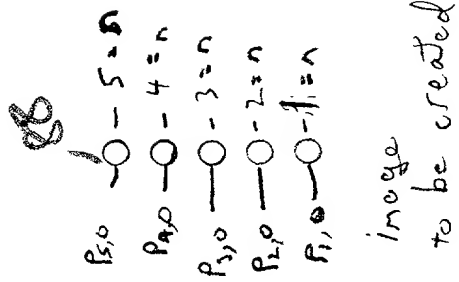 88
P5,0 - 5 = n
P4,0 - 4 = n
P3,0 - 3 = n
P2,0 - 2 = n
P1,0 - 1 = n
image
to be created